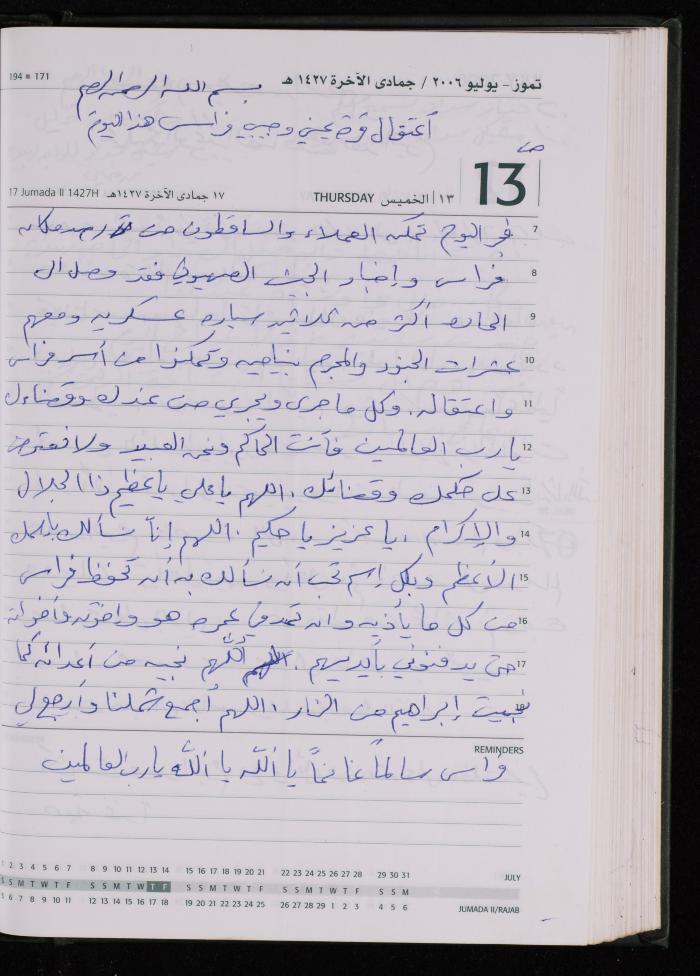 194 ■ 171
تموز - يوليو ٢٠٠٦ / جمادى الآخرة ١٤٢٧ هـ
بسم الله الرحمن الرحيم
اعتقال قرة عيني وحبيبي فراس هذا اليوم
13
17 Jumada II 1427H ١٧ جمادى الآخرة ١٤٢٧هـ THURSDAY الخميس | ١٣
7 فجر اليوم تمكن العملاء والساقطون من رصد مكان
8 فراس وإخبار الجيش الصهيوني فقد وصل الى
9 الحارة أكثر من ثلاثين سيارة عسكريه ومعهم
10 عشرات الجنود والمجرم بنياميه وتمكنوا من أسر فراس
11 واعتقاله. وكل ما جرى ويجري من عندك وقضاءك
12 يا رب العالمين فأنت الحاكم ونحن العبيد ولا نعترض
13 على حكمك وقضائك، اللهم يا علي يا عظيم ذا الجلال
14 والإكرام، يا عزيز يا حكيم، اللهم إنا نسألك باسمك
15 الأعظم وبكل إسم تحب أن نسألك به أن تحفظ فراس
16 من كل ما يأذيه وان تمد في عمره هو وإخوته وأخواته
17 حتى يدفنوني بأيديهم. اللهم نجيه من أعدائه كما
18 نجيت إبراهيم من النار، اللهم أجمع شملنا وأرجع لي
REMINDERS
فراس سالماً غانماً يا الله يا الله يا رب العالمين
1 2 3 4 5 6 7 8 9 10 11 12 13 14 15 16 17 18 19 20 21 22 23 24 25 26 27 28 29 30 31 JULY
S S M T W T F S S M T W T F S S M T W T F S S M T W T F S S M
5 6 7 8 9 10 11 12 13 14 15 16 17 18 19 20 21 22 23 24 25 26 27 28 29 1 2 3 4 5 6 JUMADA II/RAJAB